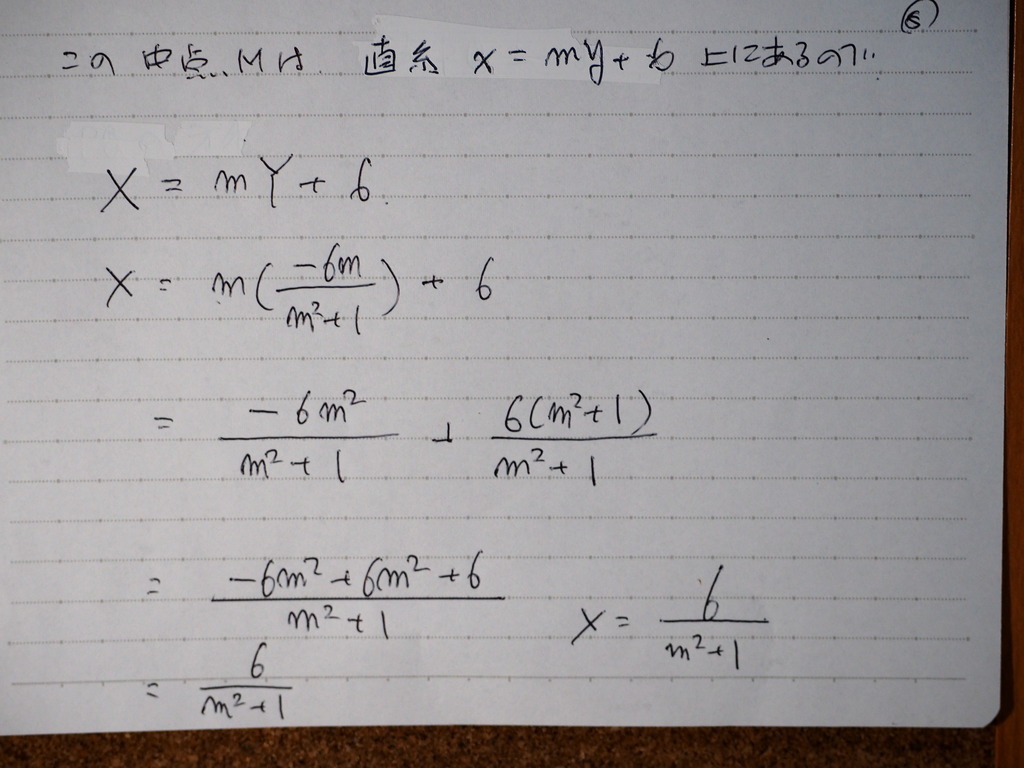 ⑤
この中点Mは 直糸 x = my + 6 上にあるので
X = mY + 6.
X = m(-6m/(m²+1)) + 6
= -6m²/(m²+1) + 6(m²+1)/(m²+1)
= (-6m²+6m²+6)/(m²+1)
X = 6/(m²+1)
= 6/(m²+1)